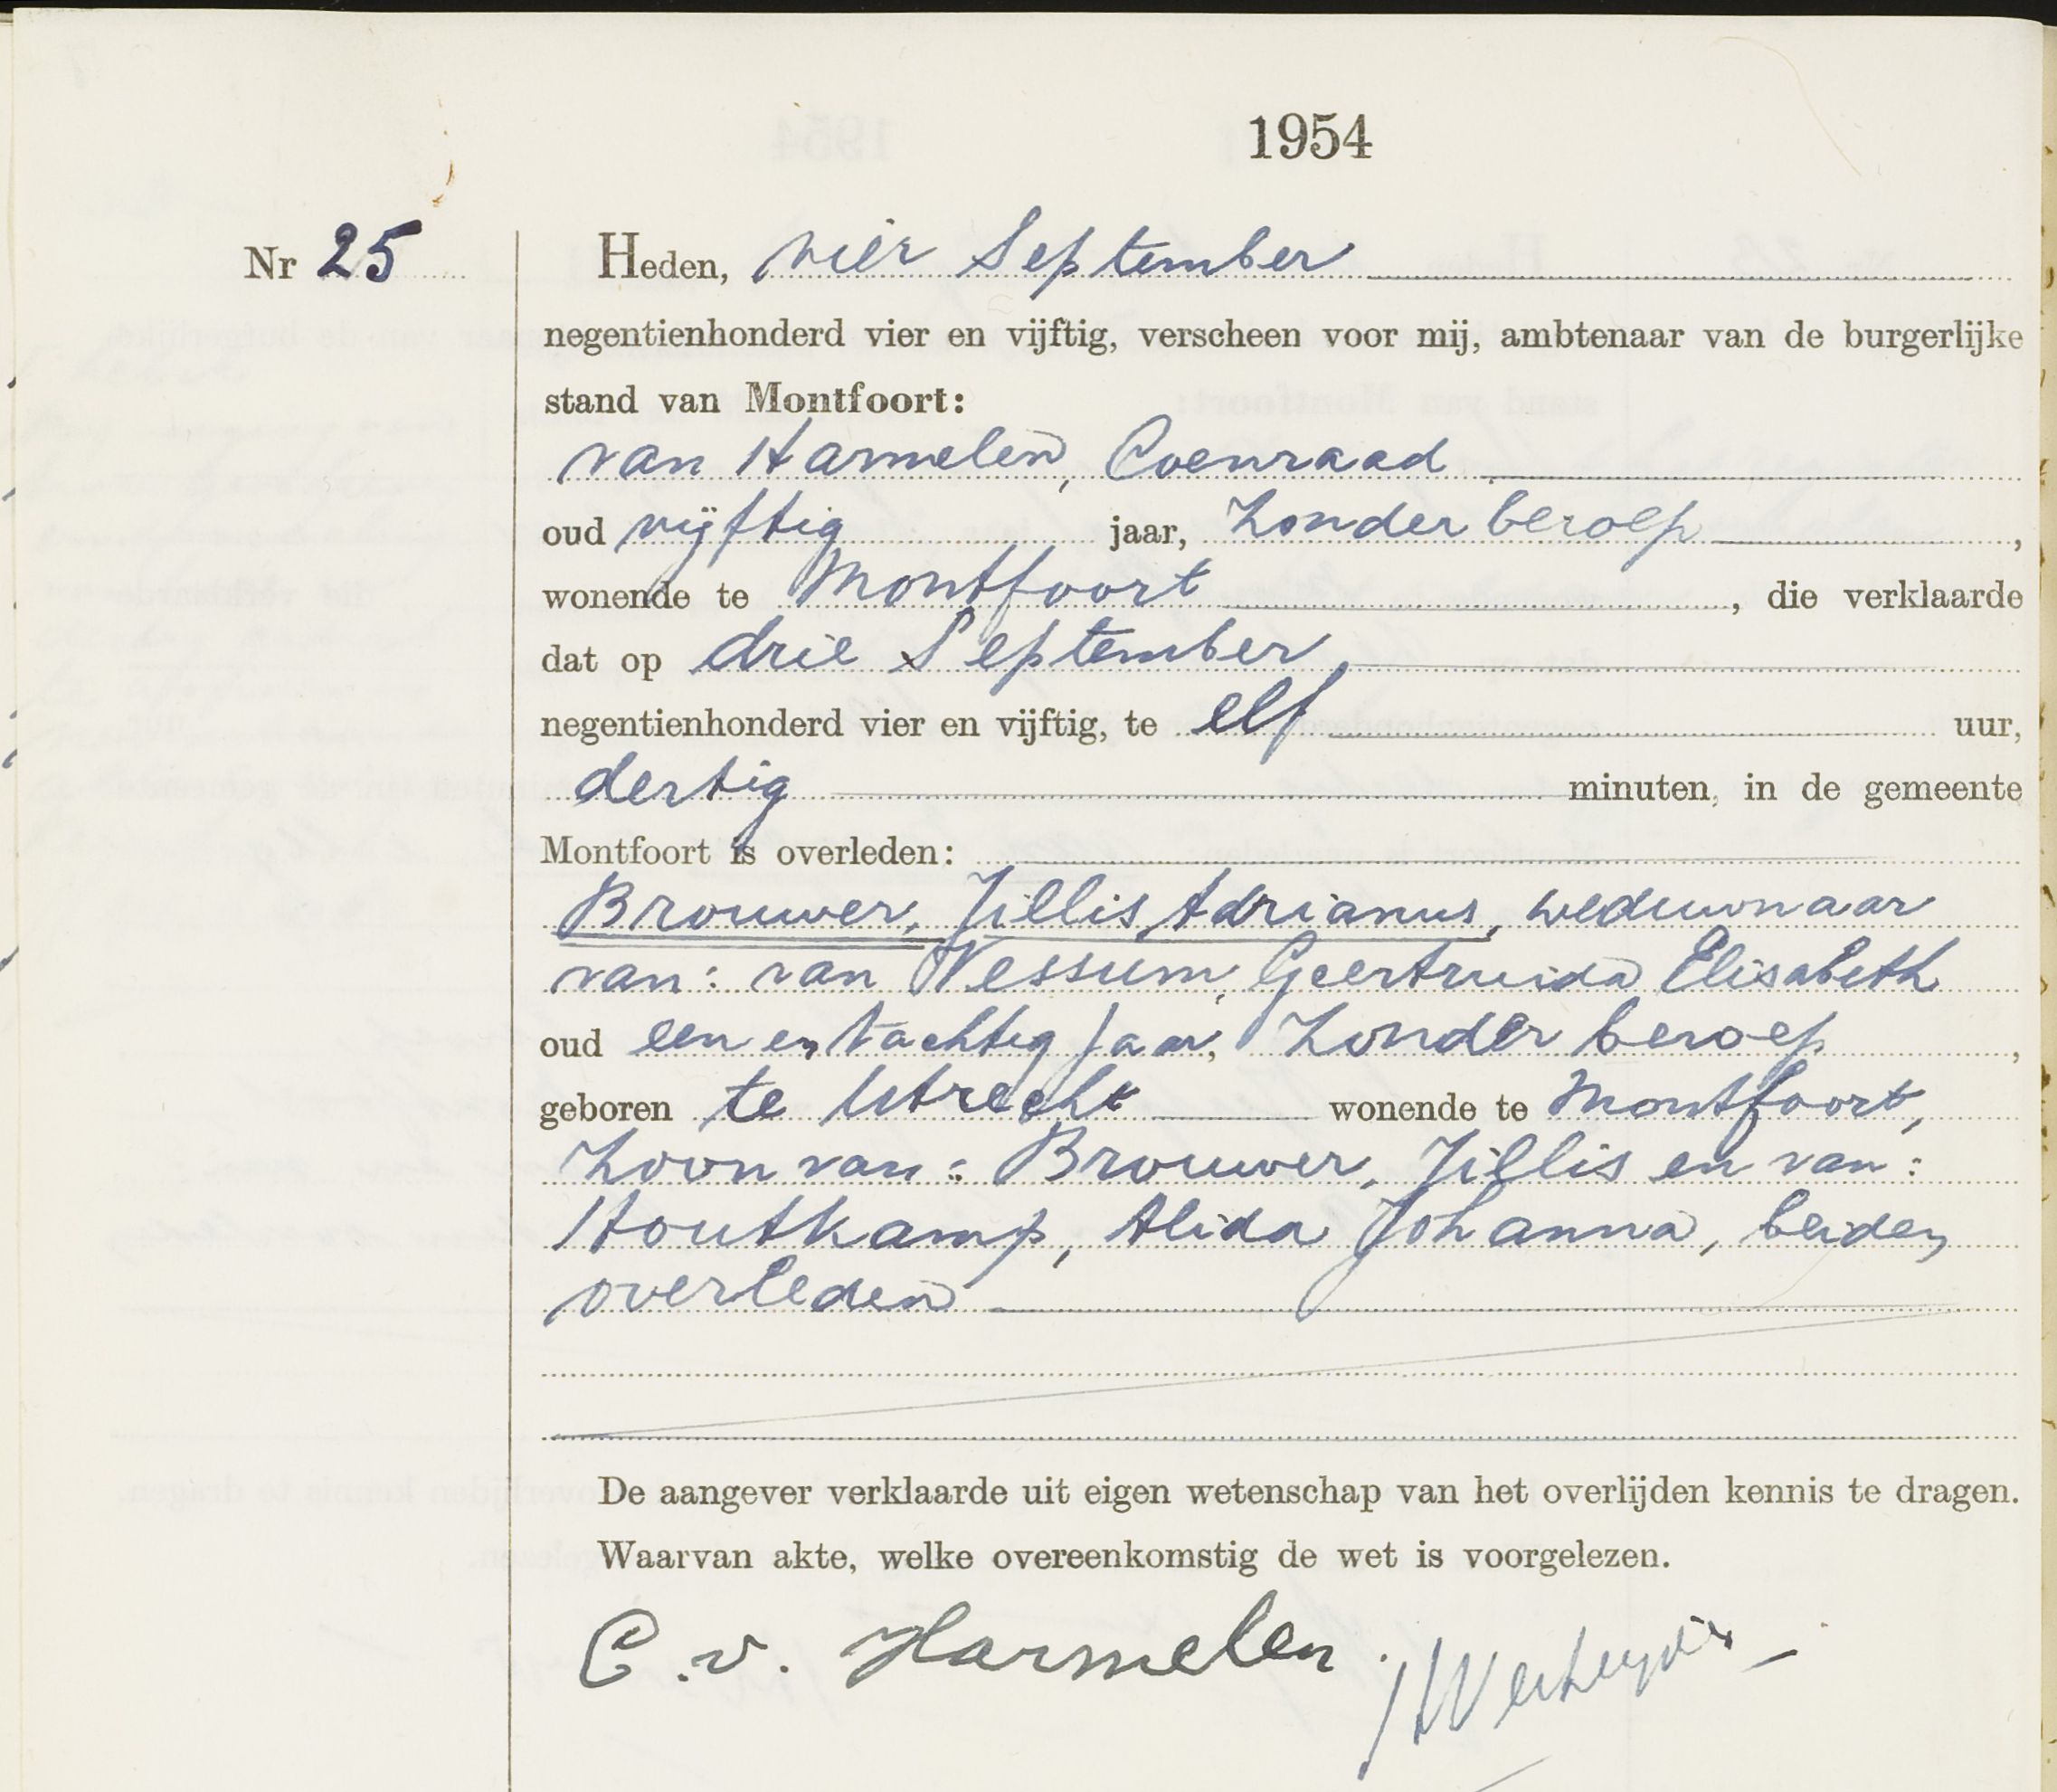 1954
Nr 25
Heden, vier September
negentienhonderd vier en vijftig, verscheen voor mij, ambtenaar van de burgerlijke
stand van Montfoort:
van Harmelen, Coenraad
oud vijftig jaar, zonder beroep,
wonende te Montfoort, die verklaarde
dat op drie September,
negentienhonderd vier en vijftig, te elf uur,
dertig minuten, in de gemeente
Montfoort is overleden:
Brouwer, Jillis Adrianus, weduwnaar
van: van Vessum, Geertruida Elisabeth
oud een en tachtig jaar, zonder beroep,
geboren te Utrecht wonende te Montfoort,
zoon van: Brouwer, Jillis en van:
Houtkamp, Alida Johanna, beiden
overleden
De aangever verklaarde uit eigen wetenschap van het overlijden kennis te dragen.
Waarvan akte, welke overeenkomstig de wet is voorgelezen.
C. v. Harmelen.